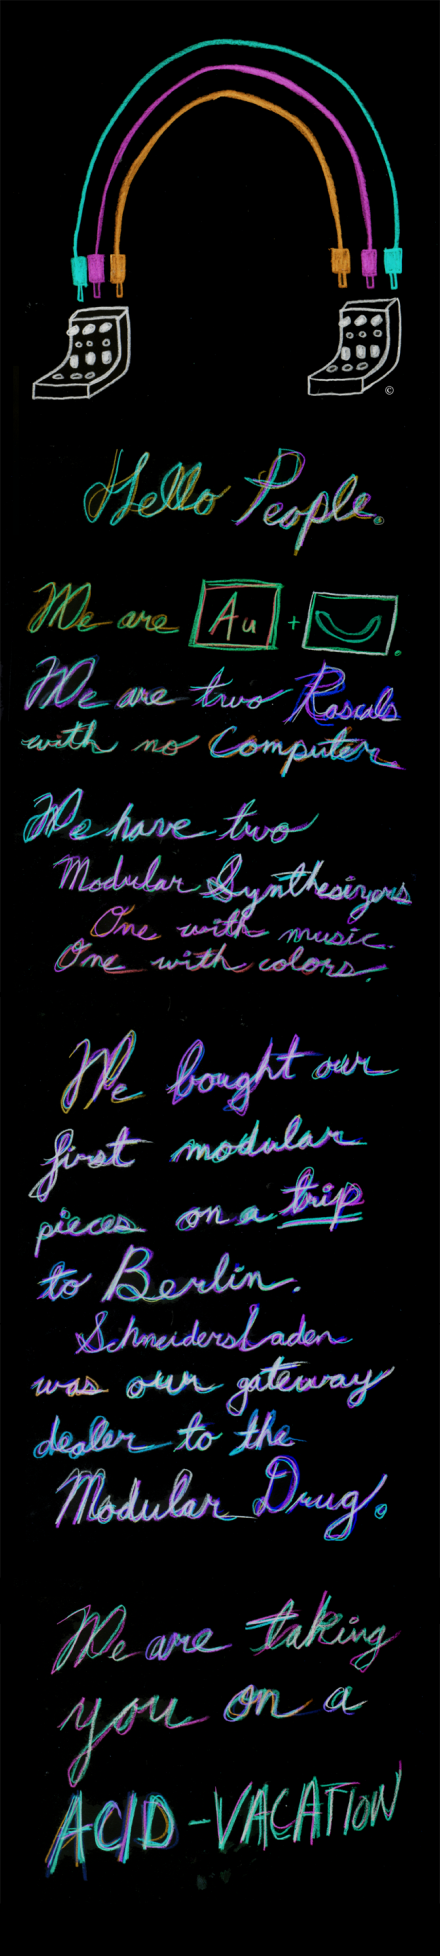 ©
Hello People.
We are Au + .
We are two Rascals
with no Computer.
We have two
Modular Synthesizers
One with music.
One with colors.
We bought our
first modular
pieces on a trip
to Berlin.
SchneidersLaden
was our gateway
dealer to the
Modular Drug.
We are taking
you on a
ACID-VACATION